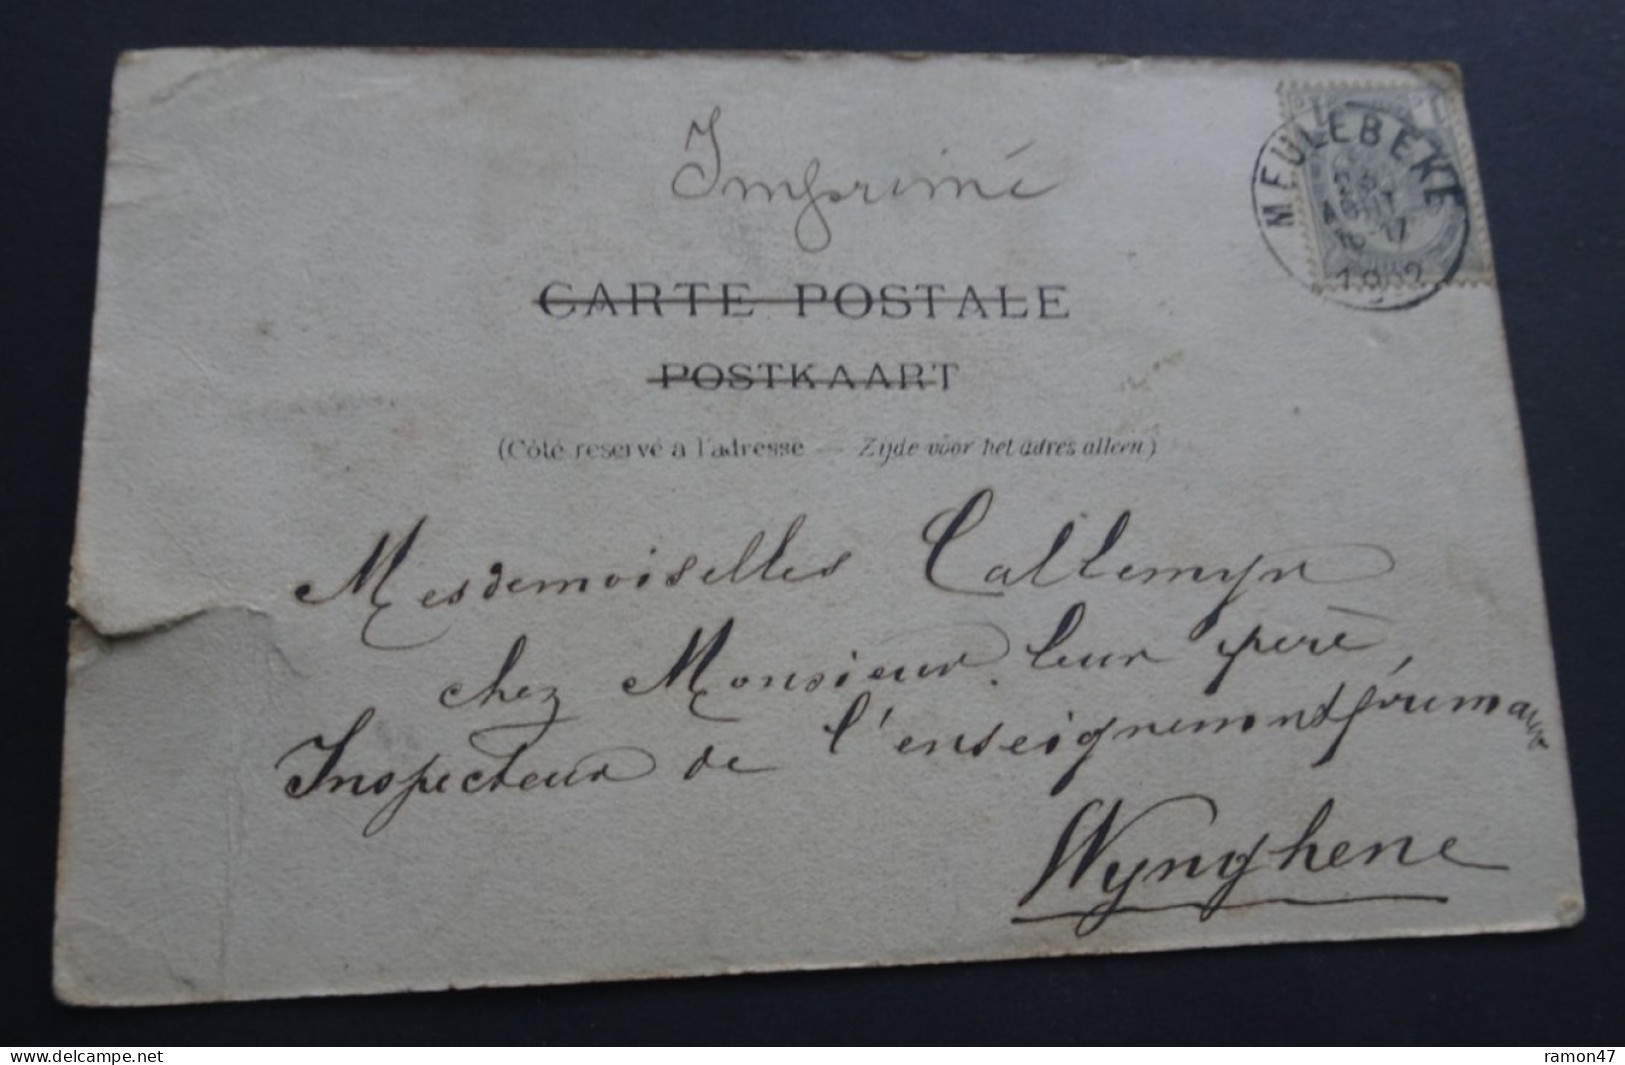 Imprimé
MEULEBEKE
AOUT
16-17
1902
CARTE POSTALE
POSTKAART
(Côté reservé a l'adresse — Zijde voor het adres alleen)
Mesdemoiselles Callemyn
chez Monsieur leur père,
Inspecteur de l'enseignement primaire
Wynghene
www.delcampe.net
ramon47